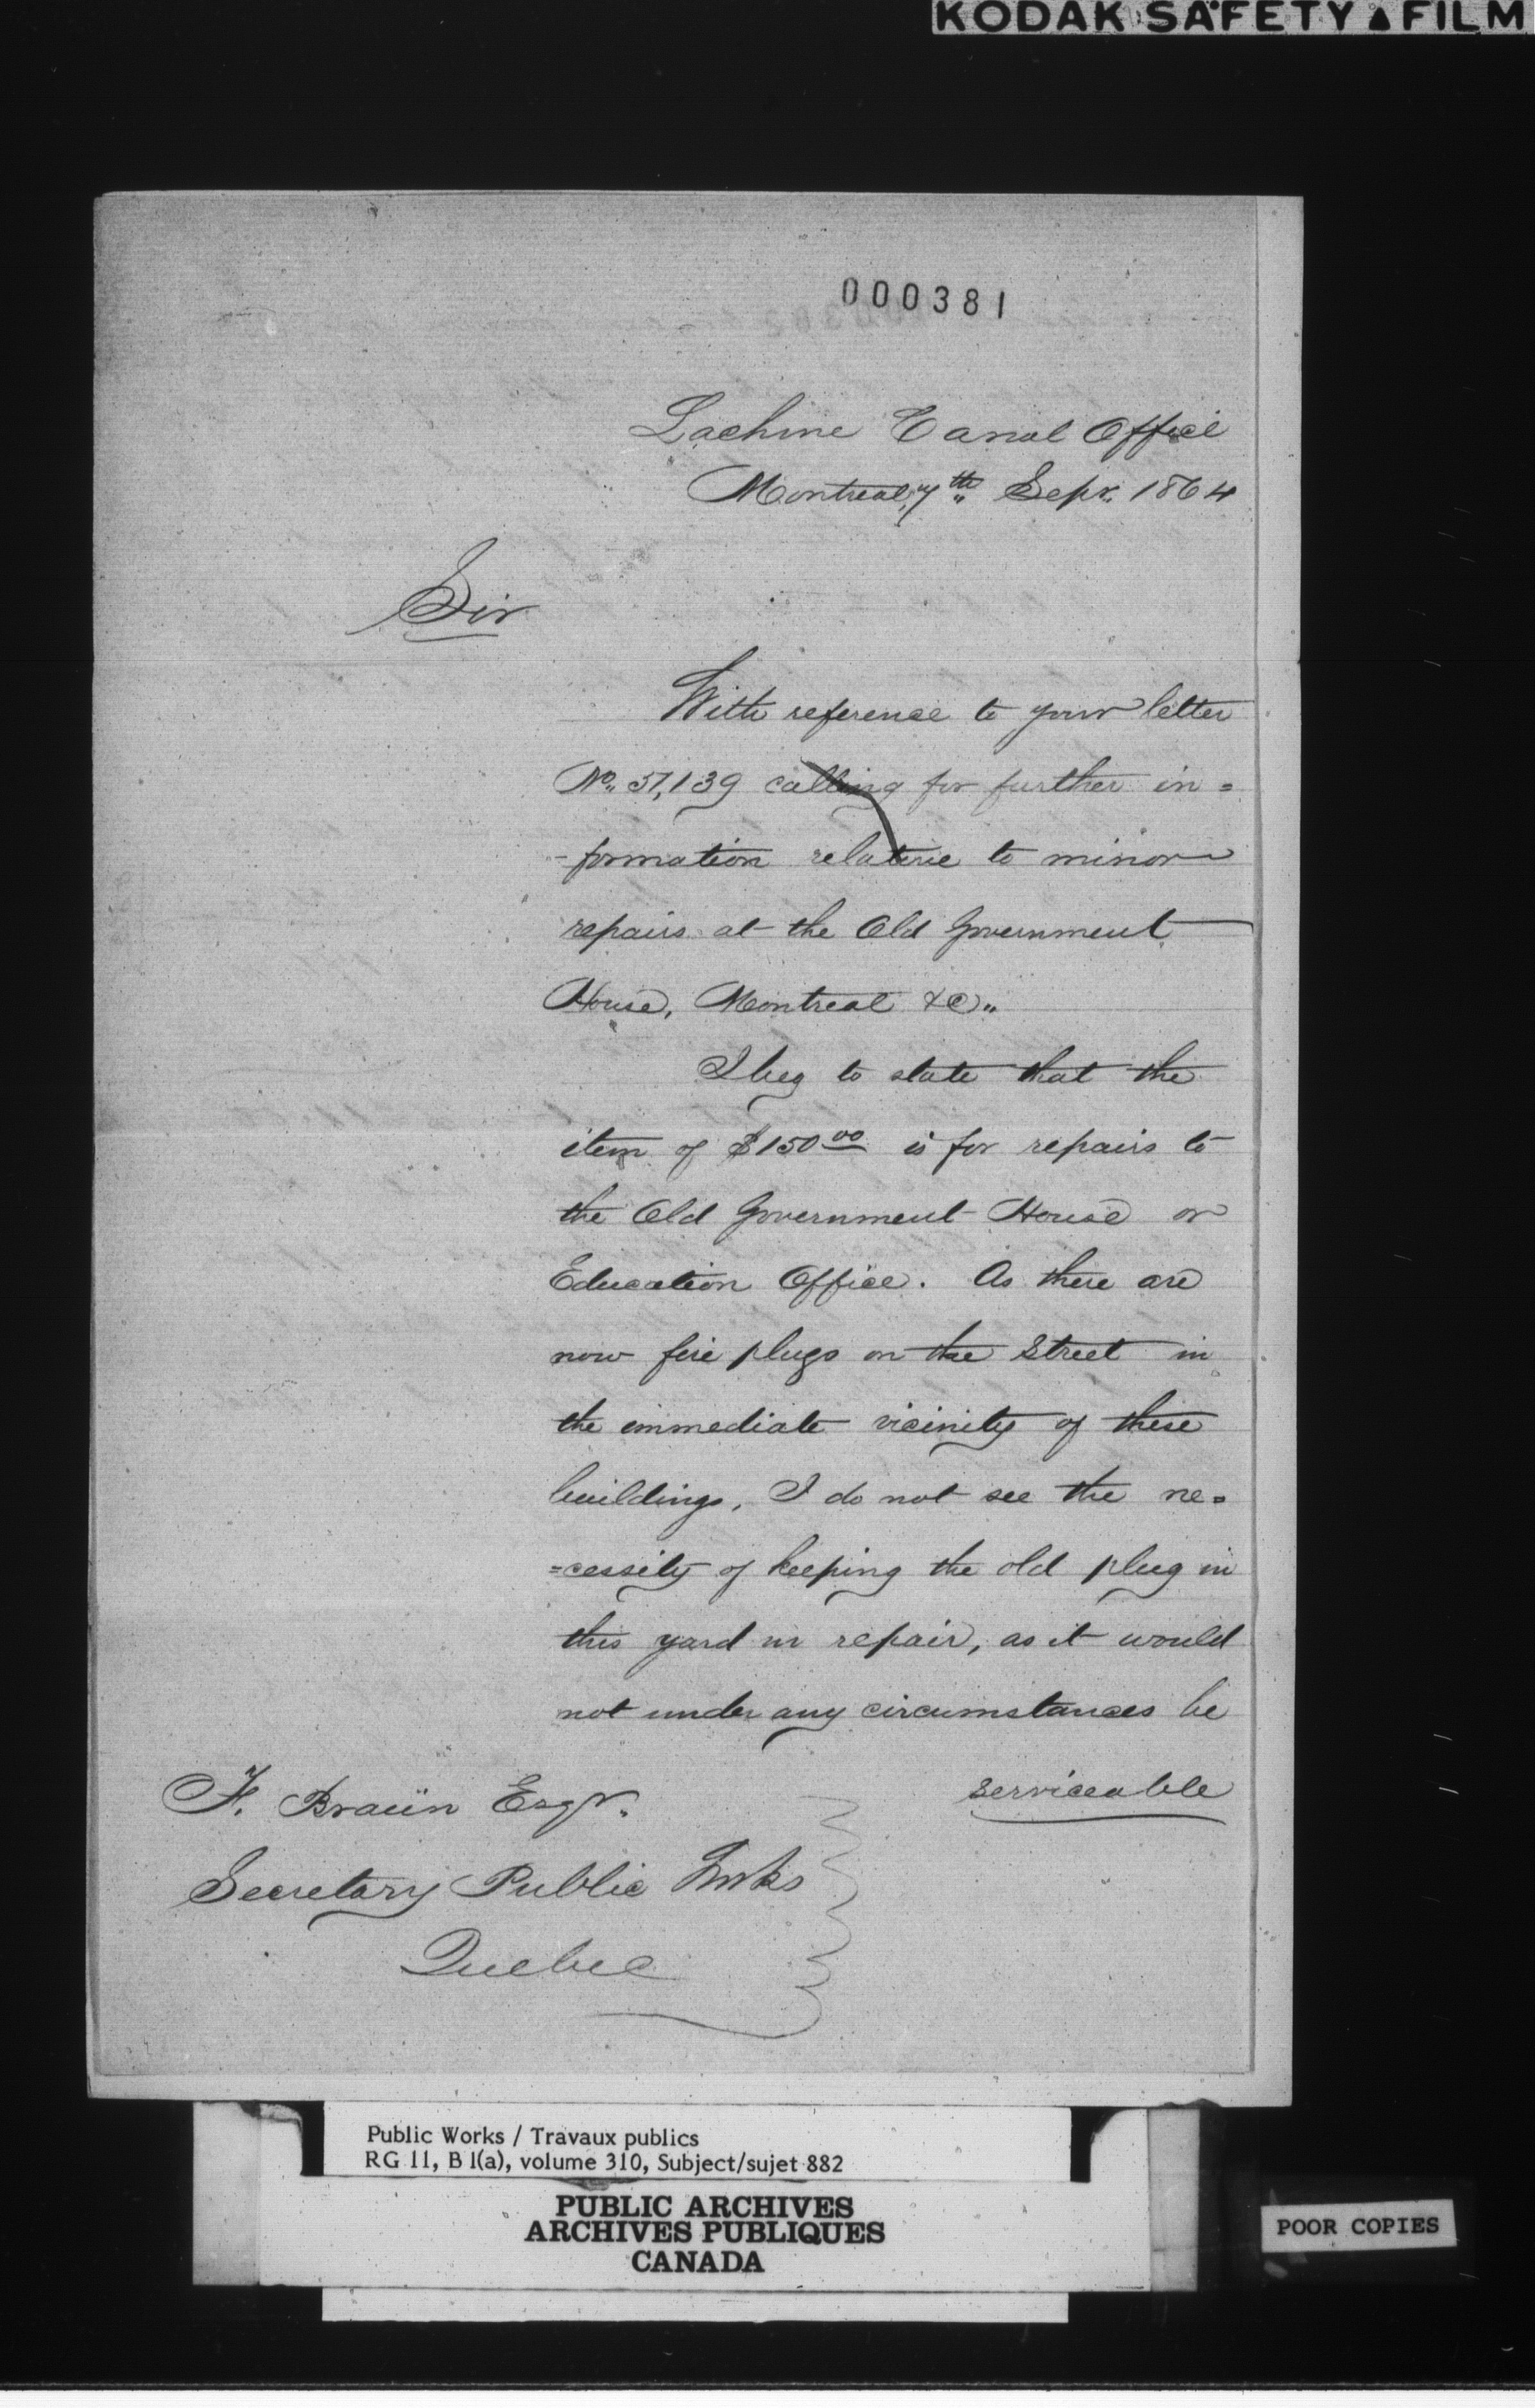 KODAK SAFETY ▲ FILM
000381
Lachine Canal Office
Montreal, 7th Sepr. 1864
Sir
With reference to your letter
No. 57,139 calling for further in=
-formation relative to minor
repairs at the Old Government
House, Montreal &c.
I beg to state that the
item of $150 00 is for repairs to
the Old Government House or
Education Office. As there are
now fire plugs on the Street in
the immediate vicinity of these
buildings, I do not see the ne=
=cessity of keeping the old plug in
this yard in repair, as it would
not under any circumstances be
serviceable
F. Braün Esqr.
Secretary Public Works
Quebec
Public Works / Travaux publics
RG 11, B 1(a), volume 310, Subject/sujet 882
PUBLIC ARCHIVES
ARCHIVES PUBLIQUES
CANADA
POOR COPIES